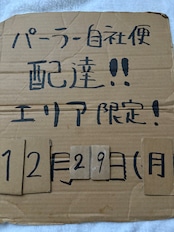 パーラー自社便
配達!!
エリア限定!
12月29日(月)